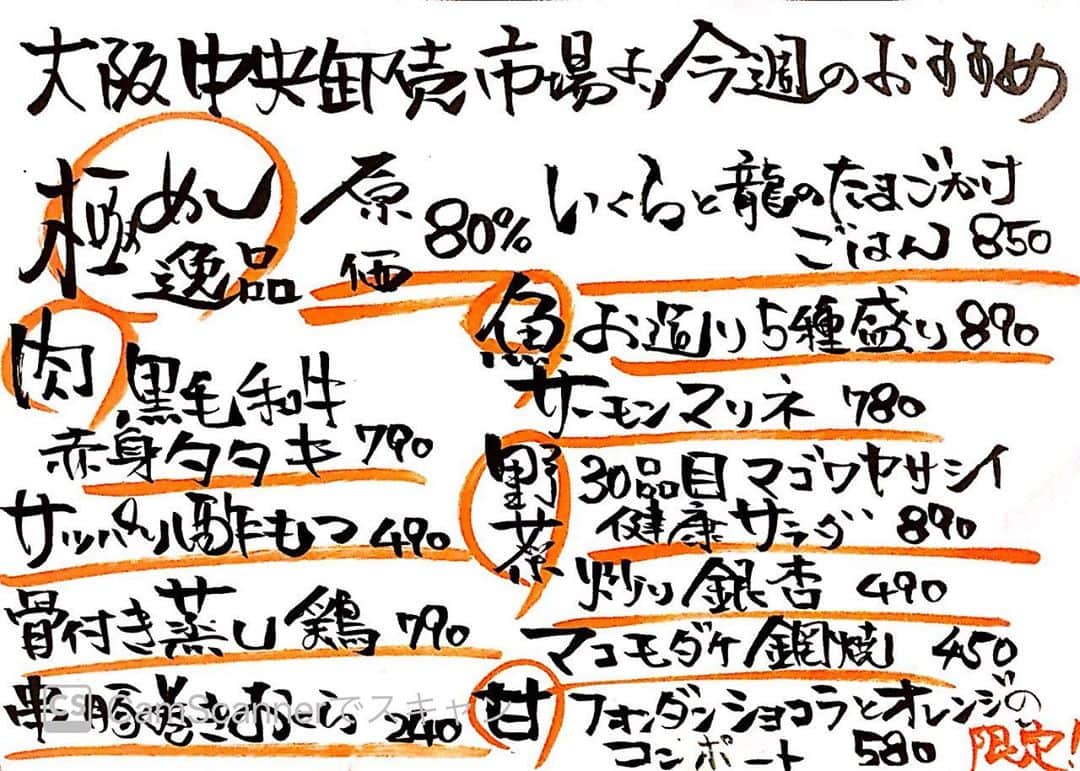 大阪中央卸売市場より今週のおすすめ
極めし
逸品
原価 80%
いくらと龍のたまごかけ
ごはん 850
肉
黒毛和牛
赤身タタキ 790
サッパリ酢もつ 490
骨付き蒸し鶏 790
串 豚巻き 240
魚
お造り5種盛り 890
サーモンマリネ 780
野菜
30品目 マゴワヤサシイ
健康サラダ 890
炒り銀杏 490
マコモダケ 網焼 450
甘
フォンダンショコラとオレンジの
コンポート 580
限定!
CS CamScannerでスキャン